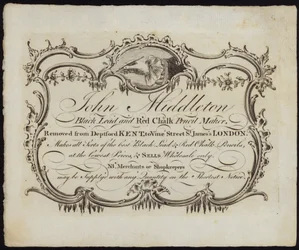 John Middleton
Black Lead and Red Chalk Pencil Maker,
Removed from Deptford KENT, to Vine Street St. James's LONDON.
Makes all Sorts of the best Black Lead & Red Chalk Pencils,
at the Lowest Prices, & SELLS Wholesale only.
NB. Merchants or Shopkeepers
may be Supply'd with any Quantity on the Shortest Notice.